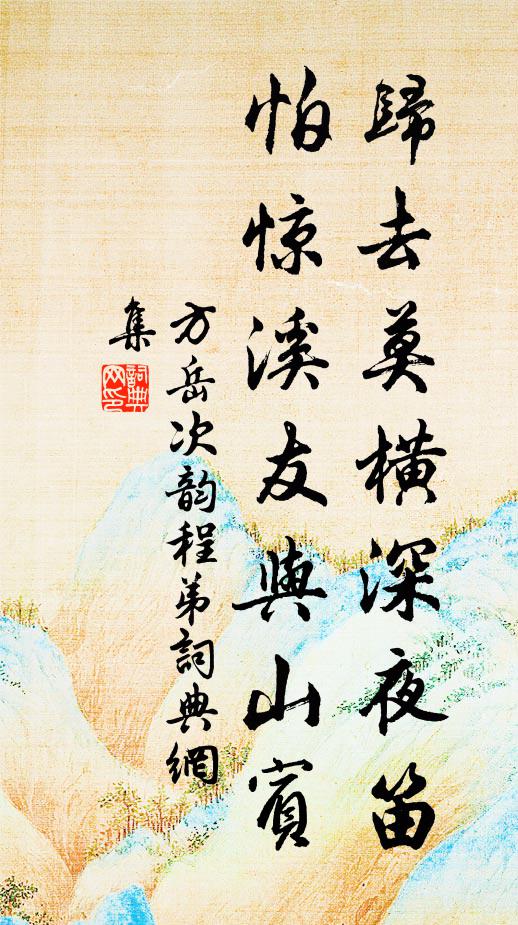 歸去莫橫深夜笛
怕惊溪友與山賓
方岳次韵程弟詞典網
集
詞典網印